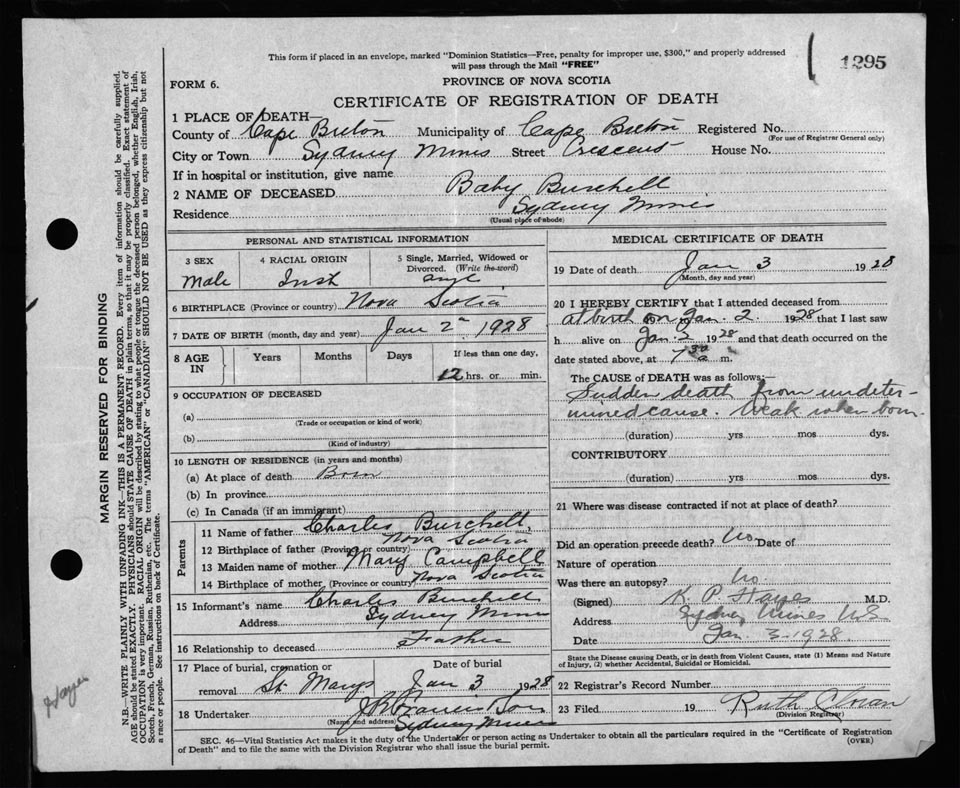 This form if placed in an envelope, marked "Dominion Statistics—Free, penalty for improper use, $300," and properly addressed
will pass through the Mail "FREE"
1295
FORM 6.
PROVINCE OF NOVA SCOTIA
CERTIFICATE OF REGISTRATION OF DEATH
1 PLACE OF DEATH—
County of Cape Breton Municipality of Cape Breton Registered No.
(For use of Registrar General only)
City or Town Sydney Mines Street Crescent House No.
If in hospital or institution, give name
2 NAME OF DECEASED Baby Burchell
Residence Sydney Mines
(Usual place of abode)
PERSONAL AND STATISTICAL INFORMATION
3 SEX 4 RACIAL ORIGIN 5 Single, Married, Widowed or
Divorced. (Write the word)
Male Irish
6 BIRTHPLACE (Province or country) Nova Scotia
7 DATE OF BIRTH (month, day and year) Jan 2 1928
8 AGE IN Years Months Days If less than one day,
12 hrs. or min.
9 OCCUPATION OF DECEASED
(a)
(Trade or occupation or kind of work)
(b)
(Kind of industry)
10 LENGTH OF RESIDENCE (in years and months)
(a) At place of death Born
(b) In province
(c) In Canada (if an immigrant)
Parents
11 Name of father Charles Burchell,
12 Birthplace of father (Province or country) Nova Scotia
13 Maiden name of mother Mary Campbell
14 Birthplace of mother, (Province or country) Nova Scotia
15 Informant's name Charles Burchell
Address Sydney Mines
16 Relationship to deceased Father
17 Place of burial, cremation or removal St. Marys
Date of burial Jan 3 1928
18 Undertaker Francis Son
(Name and address) Sydney Mines
MEDICAL CERTIFICATE OF DEATH
19 Date of death Jan 3 1928
(Month, day and year)
20 I HEREBY CERTIFY that I attended deceased from
at birth on Jan. 2. 1928 that I last saw
h alive on Jan. 2 1928 and that death occurred on the
date stated above, at 7 30 a m.
The CAUSE of DEATH was as follows:—
Sudden death from undeter-
mined cause. Weak when born.
(duration) yrs mos dys.
CONTRIBUTORY
(duration) yrs mos dys.
21 Where was disease contracted if not at place of death?
Did an operation precede death? No Date of
Nature of operation
Was there an autopsy? No.
(Signed) K. P. Hayes M.D.
Address Sydney Mines N.S
Date Jan 3. 1928
State the Disease causing Death, or in death from Violent Causes, state (1) Means and Nature
of Injury, (2) whether Accidental, Suicidal or Homicidal.
22 Registrar's Record Number
23 Filed 19 Ruth
(Division Registrar)
SEC. 46—Vital Statistics Act makes it the duty of the Undertaker or person acting as Undertaker to obtain all the particulars required in the "Certificate of Registration
of Death" and to file the same with the Division Registrar who shall issue the burial permit.
(OVER)
MARGIN RESERVED FOR BINDING
N.B.—WRITE PLAINLY WITH UNFADING INK—THIS IS A PERMANENT RECORD. Every item of information should be carefully supplied.
AGE should be stated EXACTLY. PHYSICIANS should STATE CAUSE OF DEATH in plain terms, so that it may be properly classified. Exact statement of
OCCUPATION is very important. RACIAL ORIGIN will be described by stating to what people or tongue the deceased person belonged, whether English, Irish,
Scotch, French, German, Russian, Ruthenian, etc. The terms "AMERICAN" or "CANADIAN" SHOULD NOT BE USED as they express citizenship but not
a race or people. See instructions on back of Certificate.
Hayes